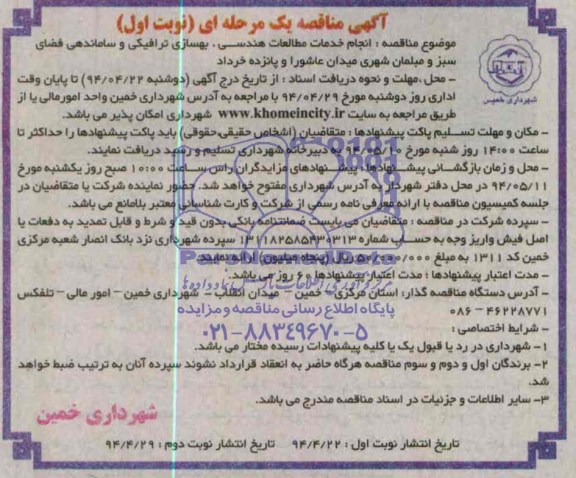 آگهی مناقصه یک مرحله ای (نوبت اول)
موضوع مناقصه : انجام خدمات مطالعات هندسی ، بهسازی ترافیکی و ساماندهی فضای
سبز و مبلمان شهری میدان عاشورا و پانزده خرداد
شهرداری خمین
– محل ،مهلت و نحوه دریافت اسناد : از تاریخ درج آگهی (دوشنبه ۹۴/۰۴/۲۲) تا پایان وقت
اداری روز دوشنبه مورخ ۹۴/۰۴/۲۹ با مراجعه به آدرس شهرداری خمین واحد امورمالی یا از
طریق مراجعه به سایت www.khomeincity.ir شهرداری امکان پذیر می باشد.
– مکان و مهلت تسلیم پاکت پیشنهادها : متقاضیان (اشخاص حقیقی،حقوقی) باید پاکت پیشنهادها را حداکثر تا
ساعت ۱۴:۰۰ روز شنبه مورخ ۹۴/۰۵/۱۰ به دبیرخانه شهرداری تسلیم و رسید دریافت نمایند.
– محل و زمان بازگشائی پیشنهادها : پیشنهادهای مزایدگران راس ساعت ۱۰:۰۰ صبح روز یکشنبه مورخ
۹۴/۰۵/۱۱ در محل دفتر شهردار به آدرس شهرداری مفتوح خواهد شد. حضور نماینده شرکت یا متقاضیان در
جلسه کمیسیون مناقصه با ارائه معرفی نامه رسمی از شرکت و کارت شناسائی معتبر بلامانع می باشد.
– سپرده شرکت در مناقصه : متقاضیان می بایست ضمانتنامه بانکی بدون قید و شرط و قابل تمدید به دفعات یا
اصل فیش واریز وجه به حساب شماره ۱۳۱۱۸۲۵۸۵۴۳۰۳۱۳ سپرده شهرداری نزد بانک انصار شعبه مرکزی
خمین کد ۱۳۱۱ به مبلغ ۵۰/۰۰۰/۰۰۰ ریال (پنجاه میلیون) ارائه نمایند.
– مدت اعتبار پیشنهادها : مدت اعتبار پیشنهادها ۶۰ روز می باشد.
– آدرس دستگاه مناقصه گذار: استان مرکزی – خمین – میدان انقلاب – شهرداری خمین – امور مالی – تلفکس
۴۶۲۲۸۷۷۱ – ۰۸۶
پایگاه اطلاع رسانی مناقصه و مزایده
۰۲۱-۸۸۳۴۹۶۷۰-۵
– شرایط اختصاصی :
۱- شهرداری در رد یا قبول یک یا کلیه پیشنهادات رسیده مختار می باشد.
۲- برندگان اول و دوم و سوم مناقصه هرگاه حاضر به انعقاد قرارداد نشوند سپرده آنان به ترتیب ضبط خواهد
شد.
۳- سایر اطلاعات و جزئیات در اسناد مناقصه مندرج می باشد.
شهرداری خمین
تاریخ انتشار نوبت اول : ۹۴/۴/۲۲ تاریخ انتشار نوبت دوم : ۹۴/۴/۲۹